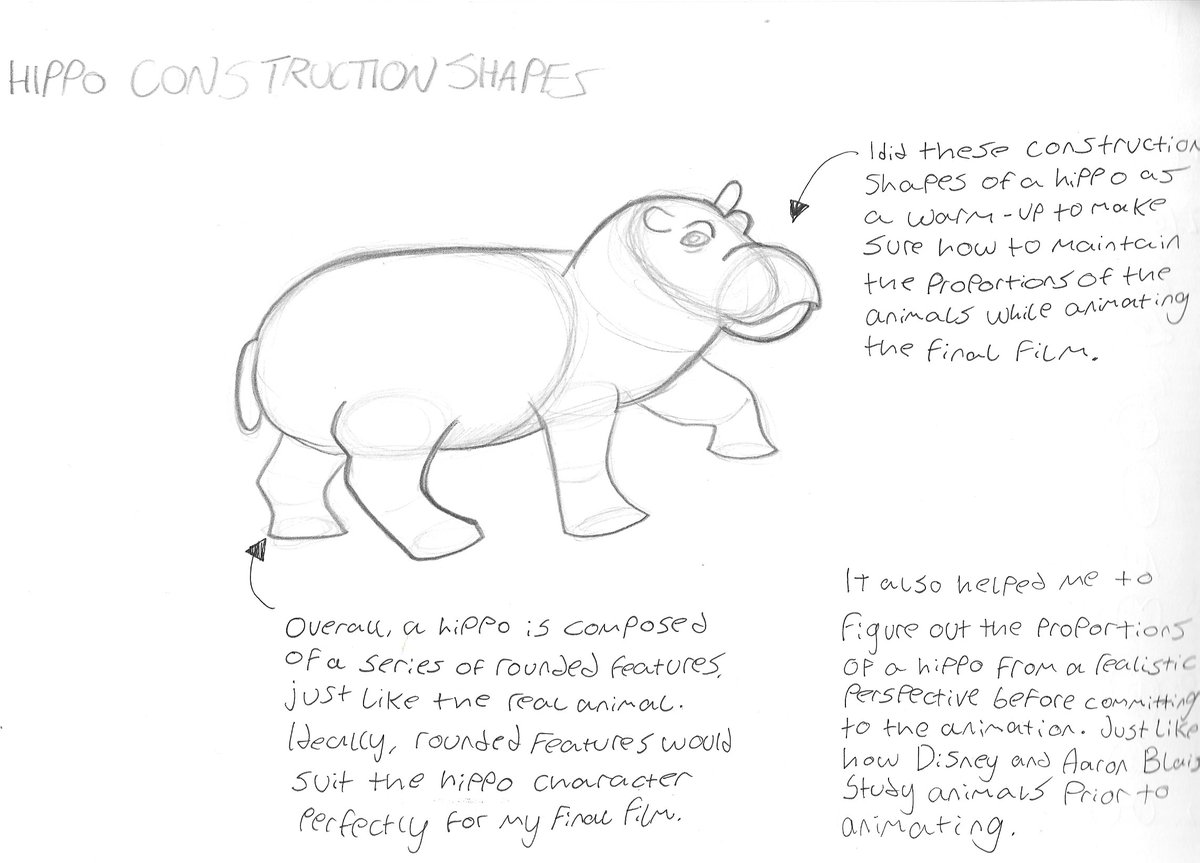 HIPPO CONSTRUCTION SHAPES
I did these construction
shapes of a hippo as
a warm-up to make
sure how to maintain
the proportions of the
animals while animating
the final film.
Overall, a hippo is composed
of a series of rounded features,
just like the real animal.
Ideally, rounded features would
suit the hippo character
perfectly for my final film.
It also helped me to
figure out the proportions
of a hippo from a realistic
perspective before committing
to the animation. Just like
how Disney and Aaron Blais
study animals prior to
animating.